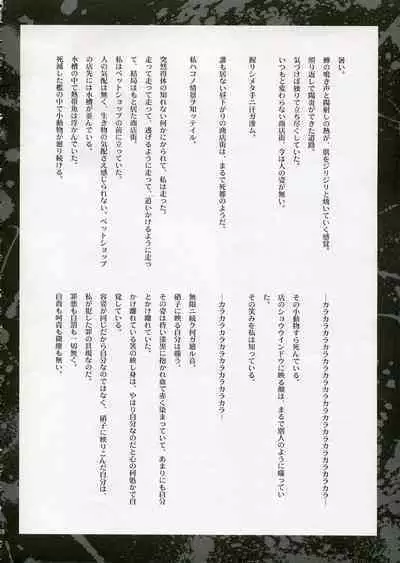 暑い。
蝉の鳴き声と陽射しの熱が、肌をジリジリと焼いていく感覚。
照り返しで陽炎ができた道路。
気づけば独りで立ち尽くしていた。
いつもと変わらない商店街、今は人の姿が無い。
握リシメタ手ニ汗ガ滲ム。
誰も居ない昼下がりの商店街は、まるで死都のようだ。
私ハコノ情景ヲ知ッテイル。
突然得体の知れない何かにかられて、私は走った。
走って走って走って、逃げるように走って、追いかけるように走っ
て、結局はもと居た商店街。
私はペットショップの前に立っていた。
人の気配は無く、生き物の気配さえ感じられない、ペットショップ
の店先には水槽が並んでいる。
水槽の中で熱帯魚は浮かんでいた。
死滅した檻の中で小動物が廻り続ける。
―カラカラカラカラカラカラカラカラカラカラカラカラ―
その小動物すら死んでいる。
店のショウウインドウに映る顔は、まるで別人のように嗤ってい
た。
その笑みを私は知っている。
―カラカラカラカラカラカラカラカラカラ―
無限ニ続ク何ガ廻ル音。
硝子に映る自分は嗤う。
その姿は昏い漆黒に抱かれ血で赤く染まっていて、あまりにも自分
とかけ離れていた。
かけ離れている筈の映し身は、やはり自分なのだと心の何処かで自
覚している。
容姿が同じだから自分なのではなく、硝子に映りこんだ自分は、
私が犯した罪の具現なのだ。
罪悪も自責も一切無く、
自責も呵責も後悔も無い。